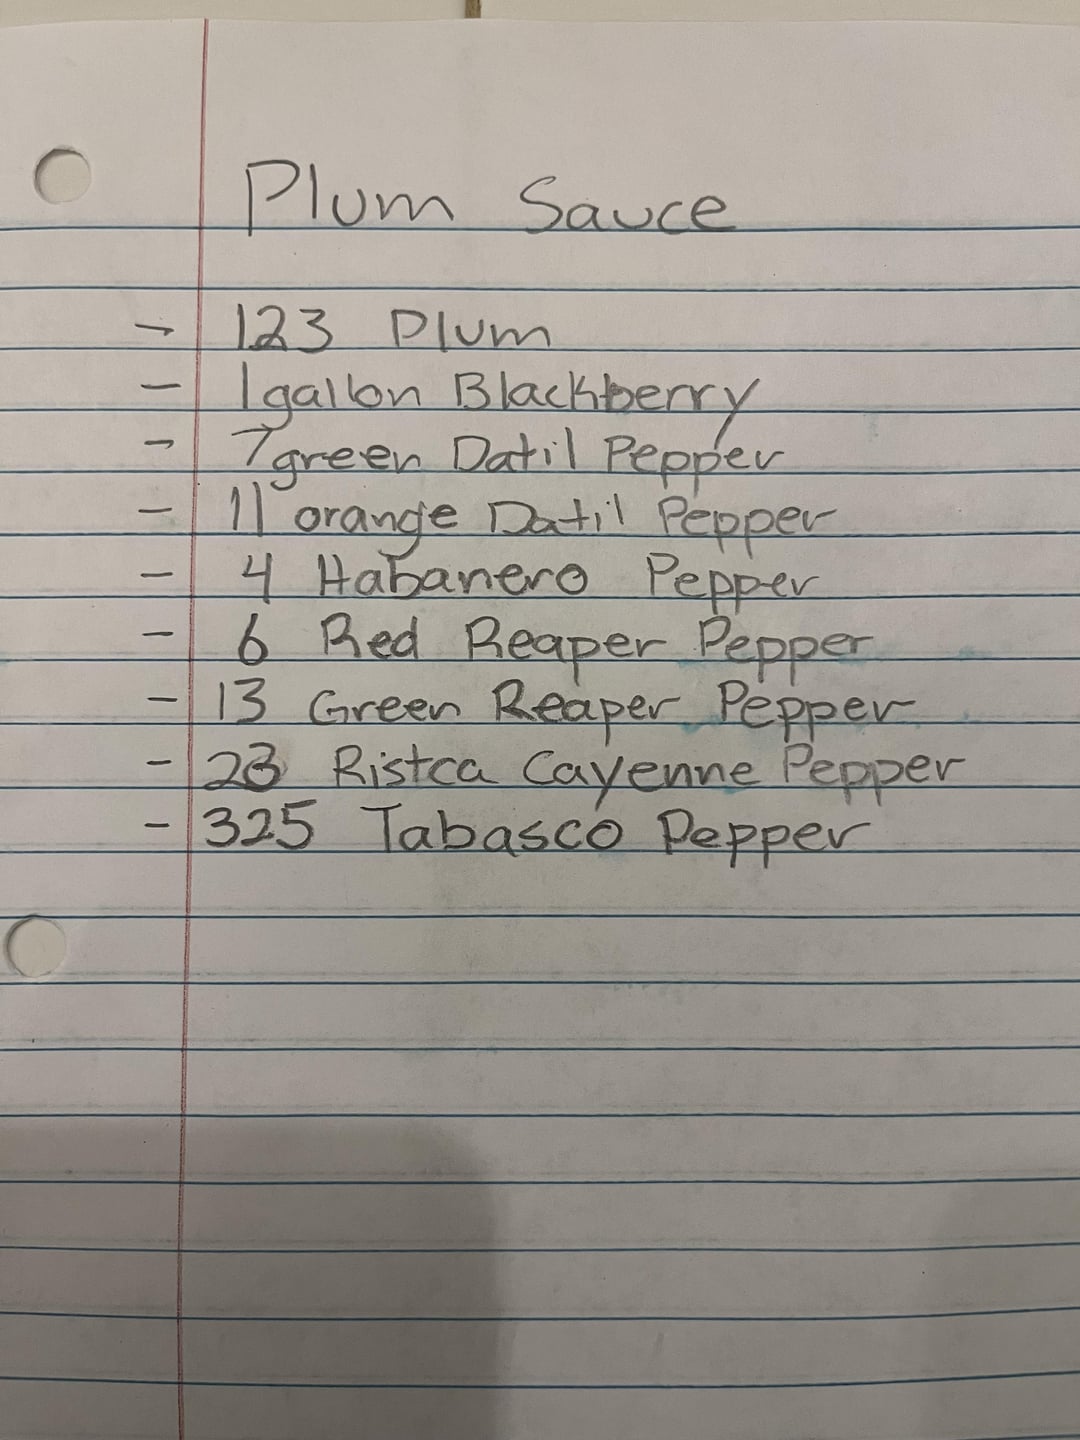 Plum Sauce
- 123 Plum
- 1 gallon Blackberry
- 7 green Datil Pepper
- 11 orange Datil Pepper
- 4 Habanero Pepper
- 6 Red Reaper Pepper
- 13 Green Reaper Pepper
- 23 Ristca Cayenne Pepper
- 325 Tabasco Pepper